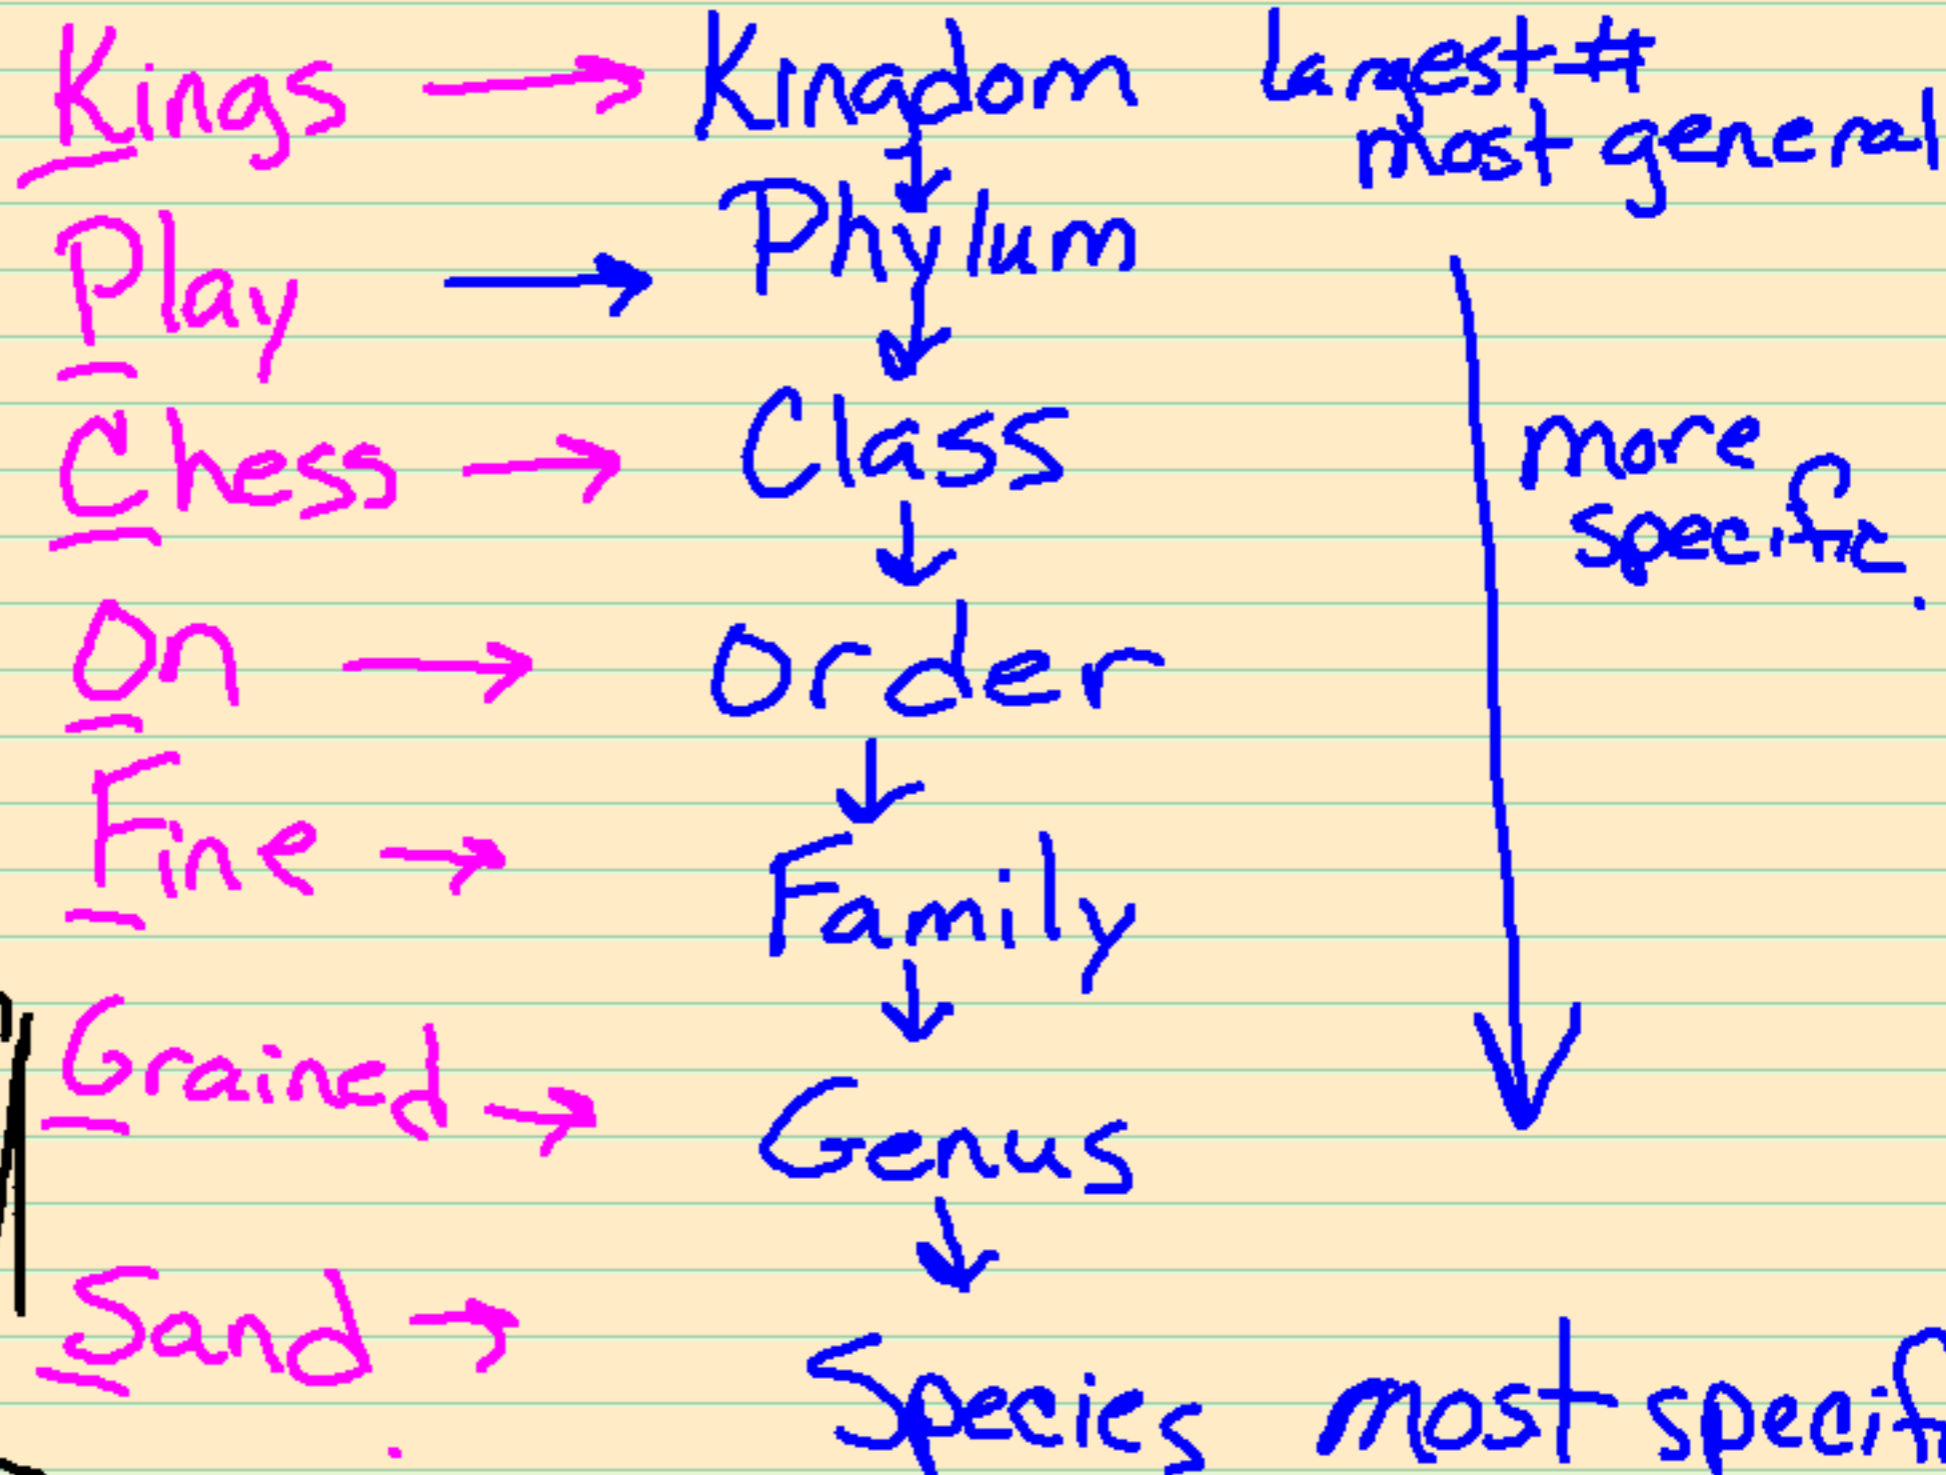 Kings → Kingdom largest #
most general
Play → Phylum
Chess → Class more
specific
On → Order
Fine → Family
Grained → Genus
Sand → Species most specif